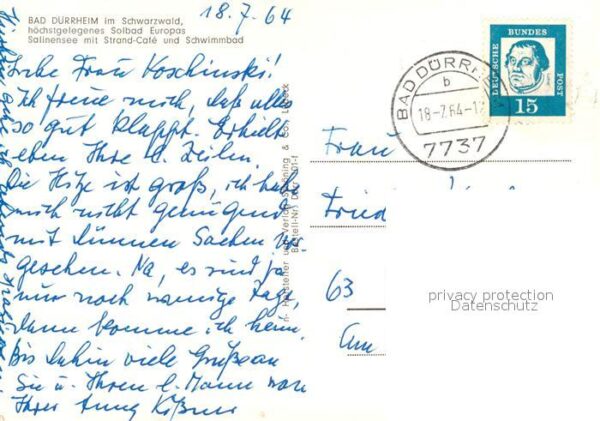 18.7.64
BAD DÜRRHEIM im Schwarzwald,
höchstgelegenes Solbad Europas
Salinensee mit Strand-Café und Schwimmbad
Liebe Frau Koschinski!
Ich freue mich, daß alles
so gut klappt. Erhielt
eben Ihre l. Zeilen.
Die Hitze ist groß, ich habe
mich nicht genügend
mit dünnen Sachen ver
gesehen. Na, es sind ja
nur noch wenige Tage,
dann komme ich heim.
Bis dahin viele Grüße an
Sie u. Ihren l. Mann von
Ihrer Anny
DEUTSCHE BUNDES POST
15
BAD DÜRRH
b
18-7.64-1
7737
Frau
Fried
63
Am
privacy protection
Datenschutz